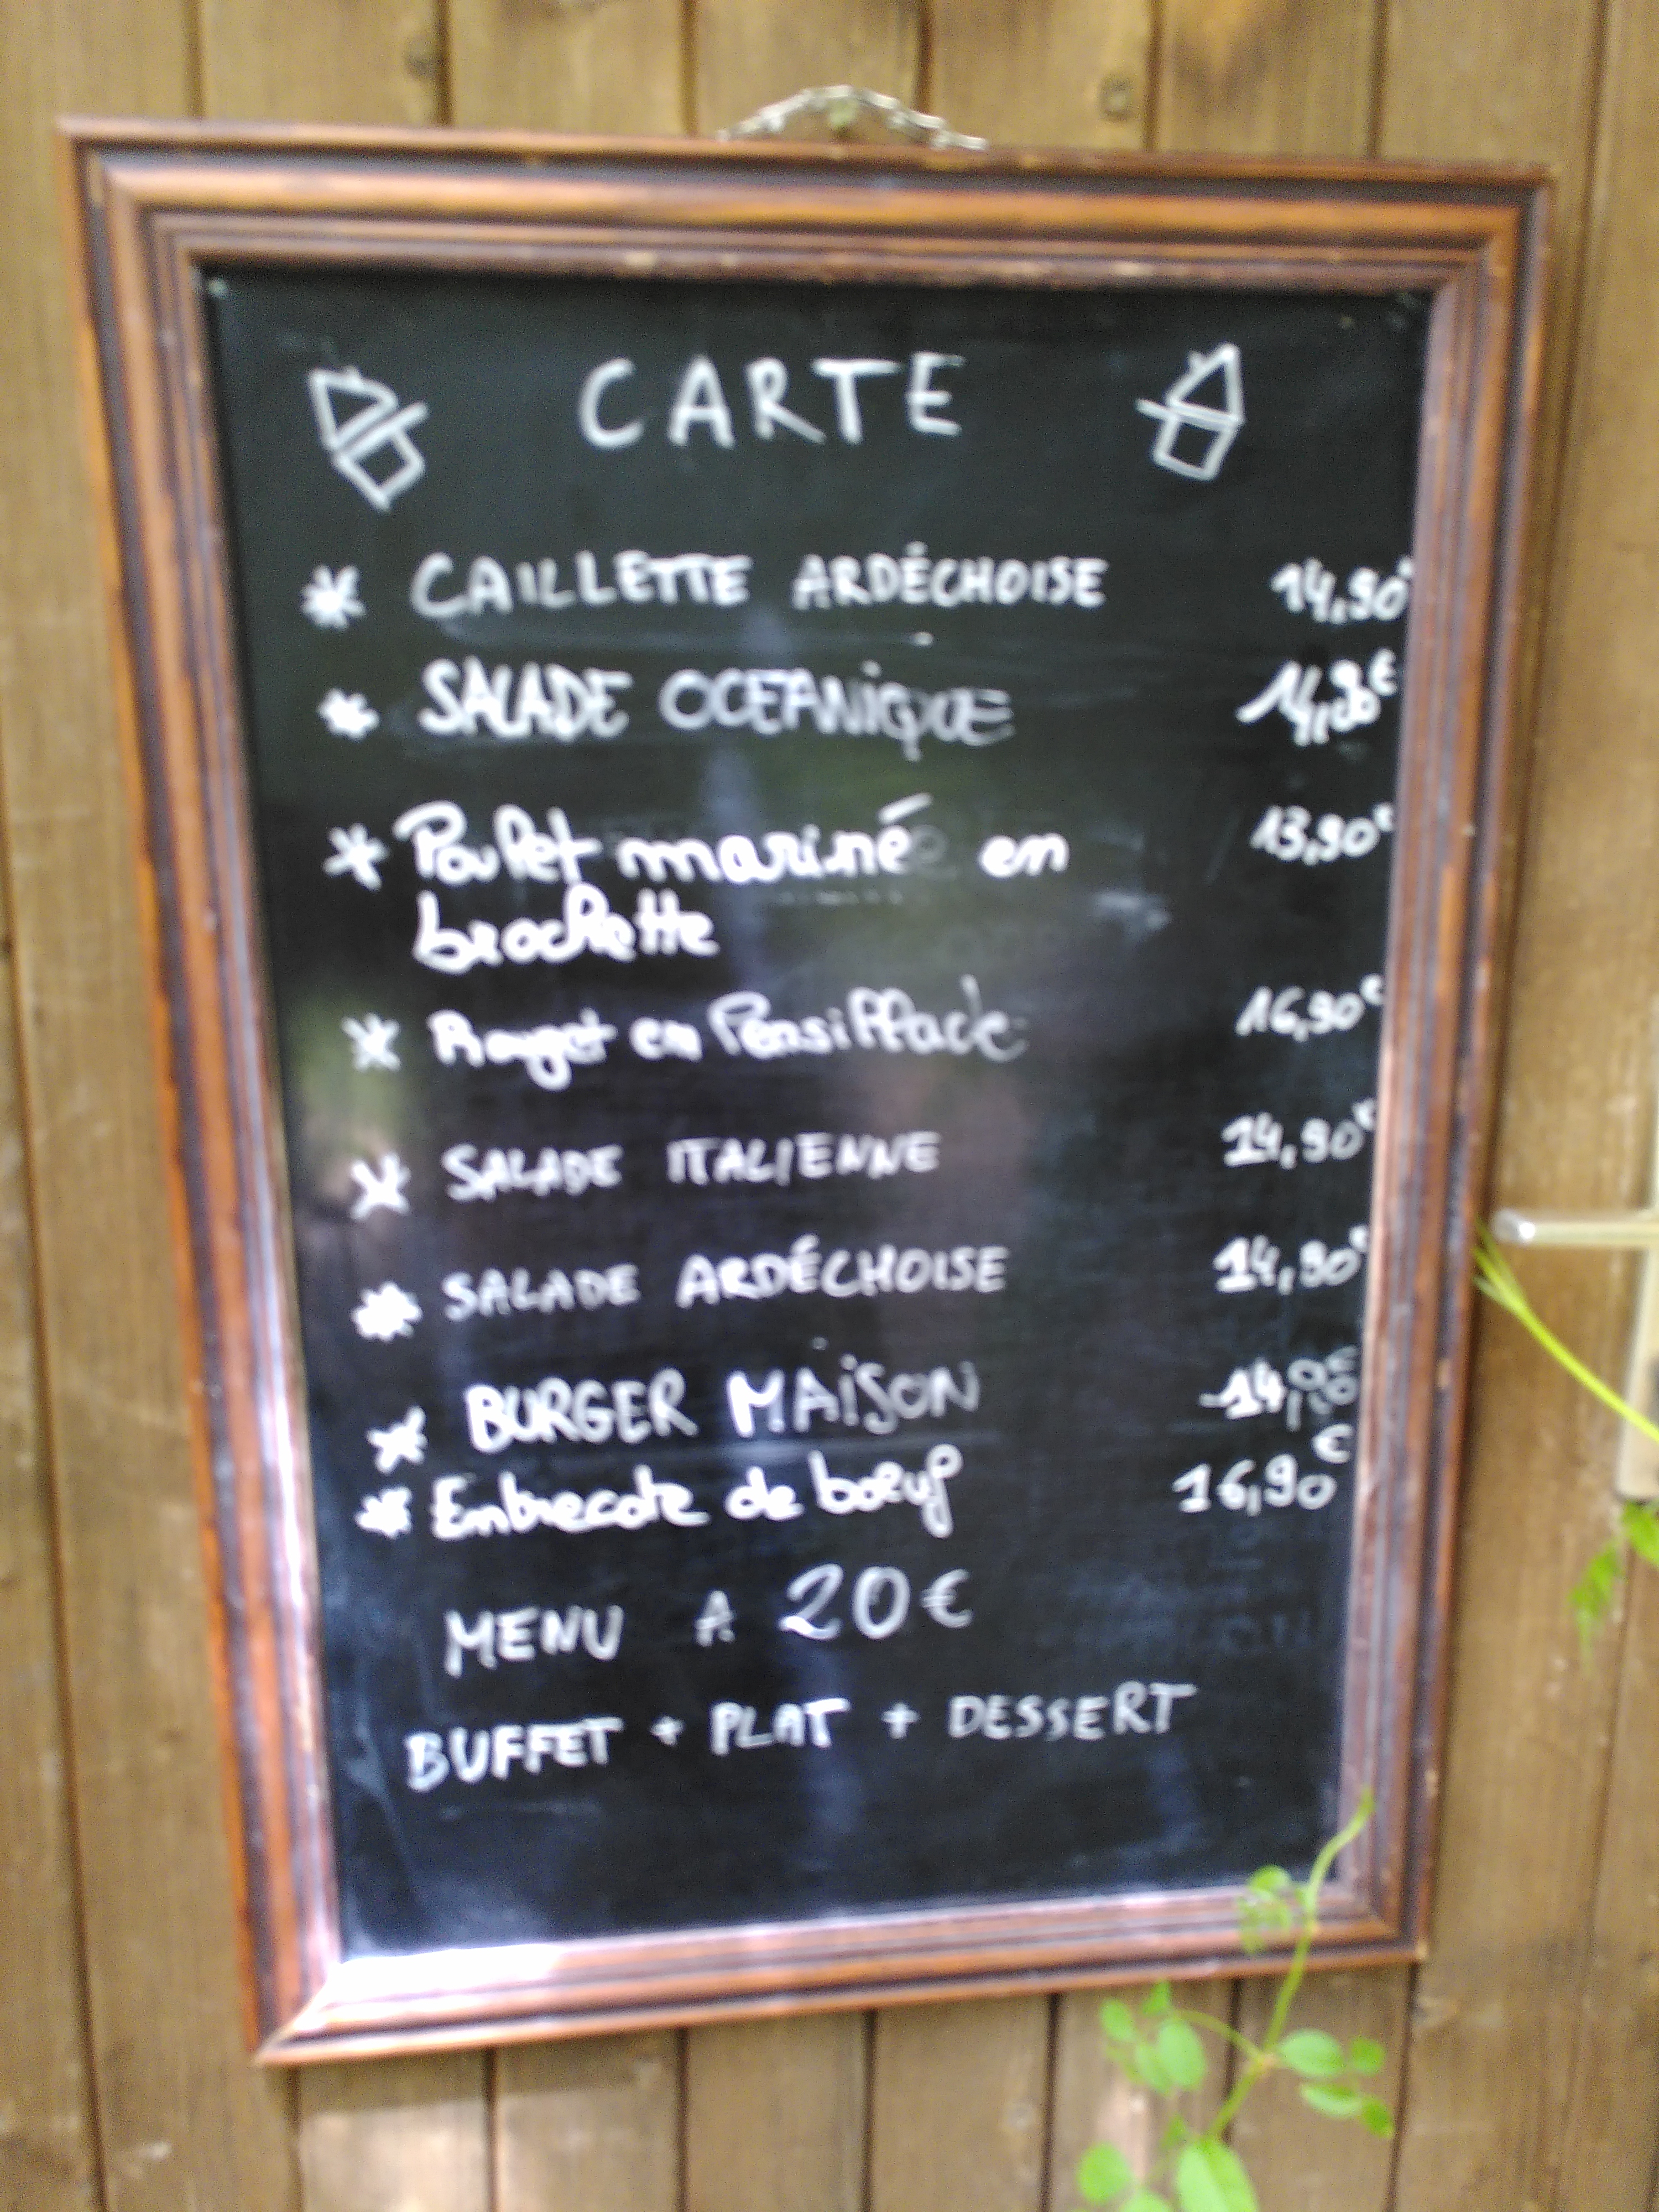 CARTE
* CAILLETTE ARDÉCHOISE 14,90€
* SALADE OCEANiQUE 14,90€
* Poulet mariné en 13,90€
brochette
* Rouget en Persillade 16,90€
* SALADE ITALIENNE 14,90€
* SALADE ARDÉCHOISE 14,90€
* BURGER MAiSON
* Entrecote de bœuf 16,90€
MENU A 20€
BUFFET + PLAT + DESSERT